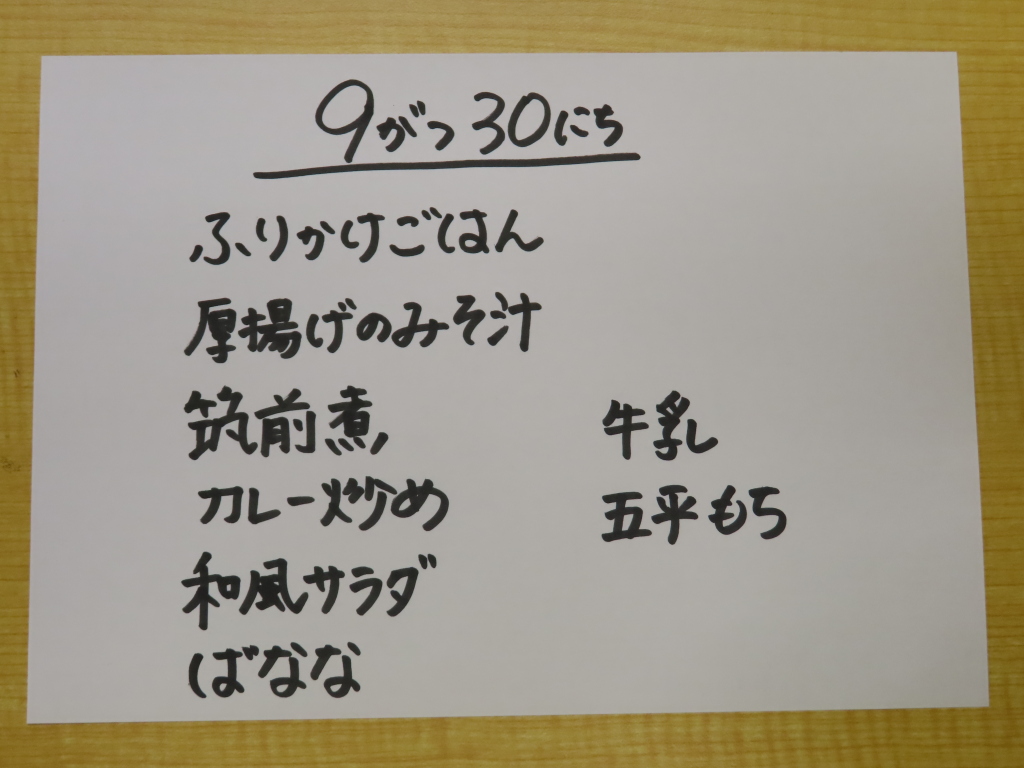 9がつ30にち
ふりかけごはん
厚揚げのみそ汁
筑前煮
カレー炒め
和風サラダ
ばなな
牛乳
五平もち